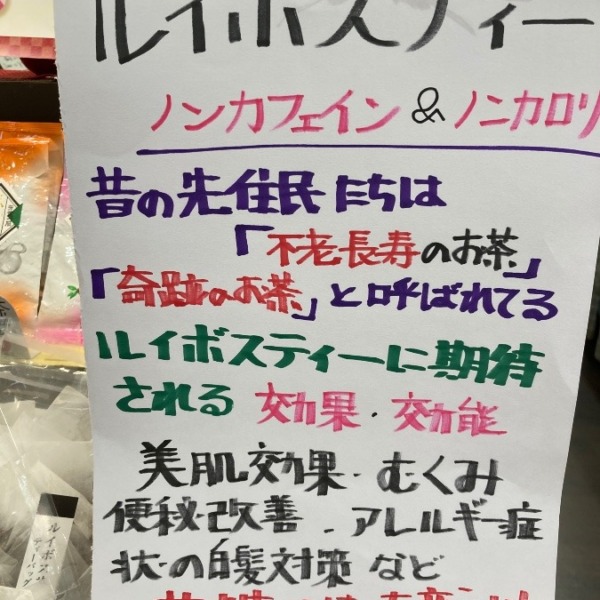 ルイボスティー
ノンカフェイン & ノンカロリ
昔の先住民たちは
「不老長寿のお茶」
「奇跡のお茶」と呼ばれてる
ルイボスティーに期待
される 効果・効能
美肌効果・むくみ
便秘・改善 . アレルギー症
状の白髪対策 など
ルイボス
ティーバッグ